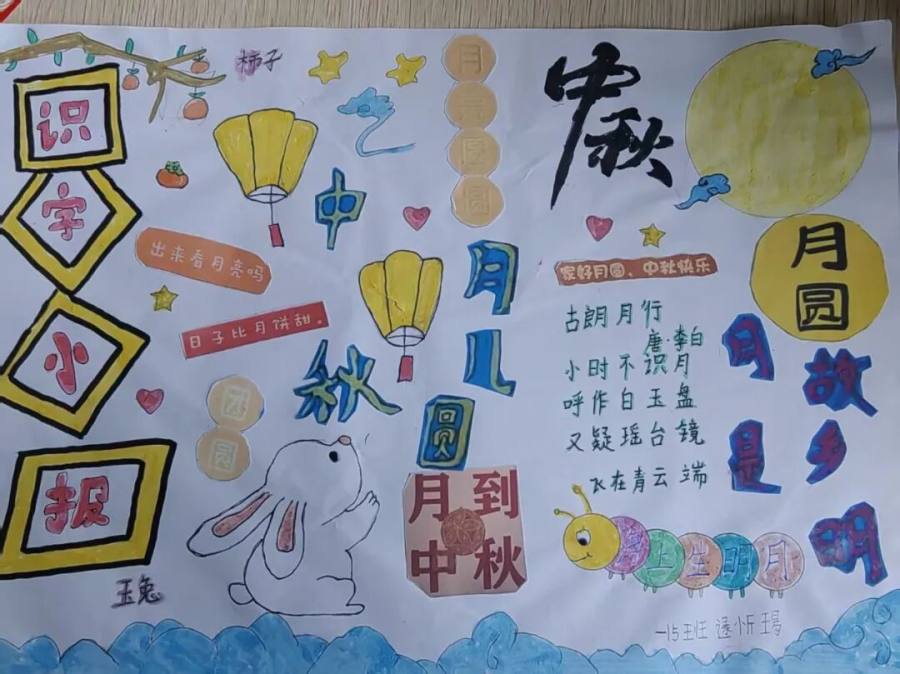 识字小报
柿子
出来看月亮吗
日子比月饼甜。
中秋
月儿圆
月到
中秋
玉兔
中秋
月圆
家好月圆、中秋快乐
古朗月行
唐·李白
小时不识月
呼作白玉盘
又疑瑶台镜
飞在青云端
月是
故乡明
海上生明月
一15班